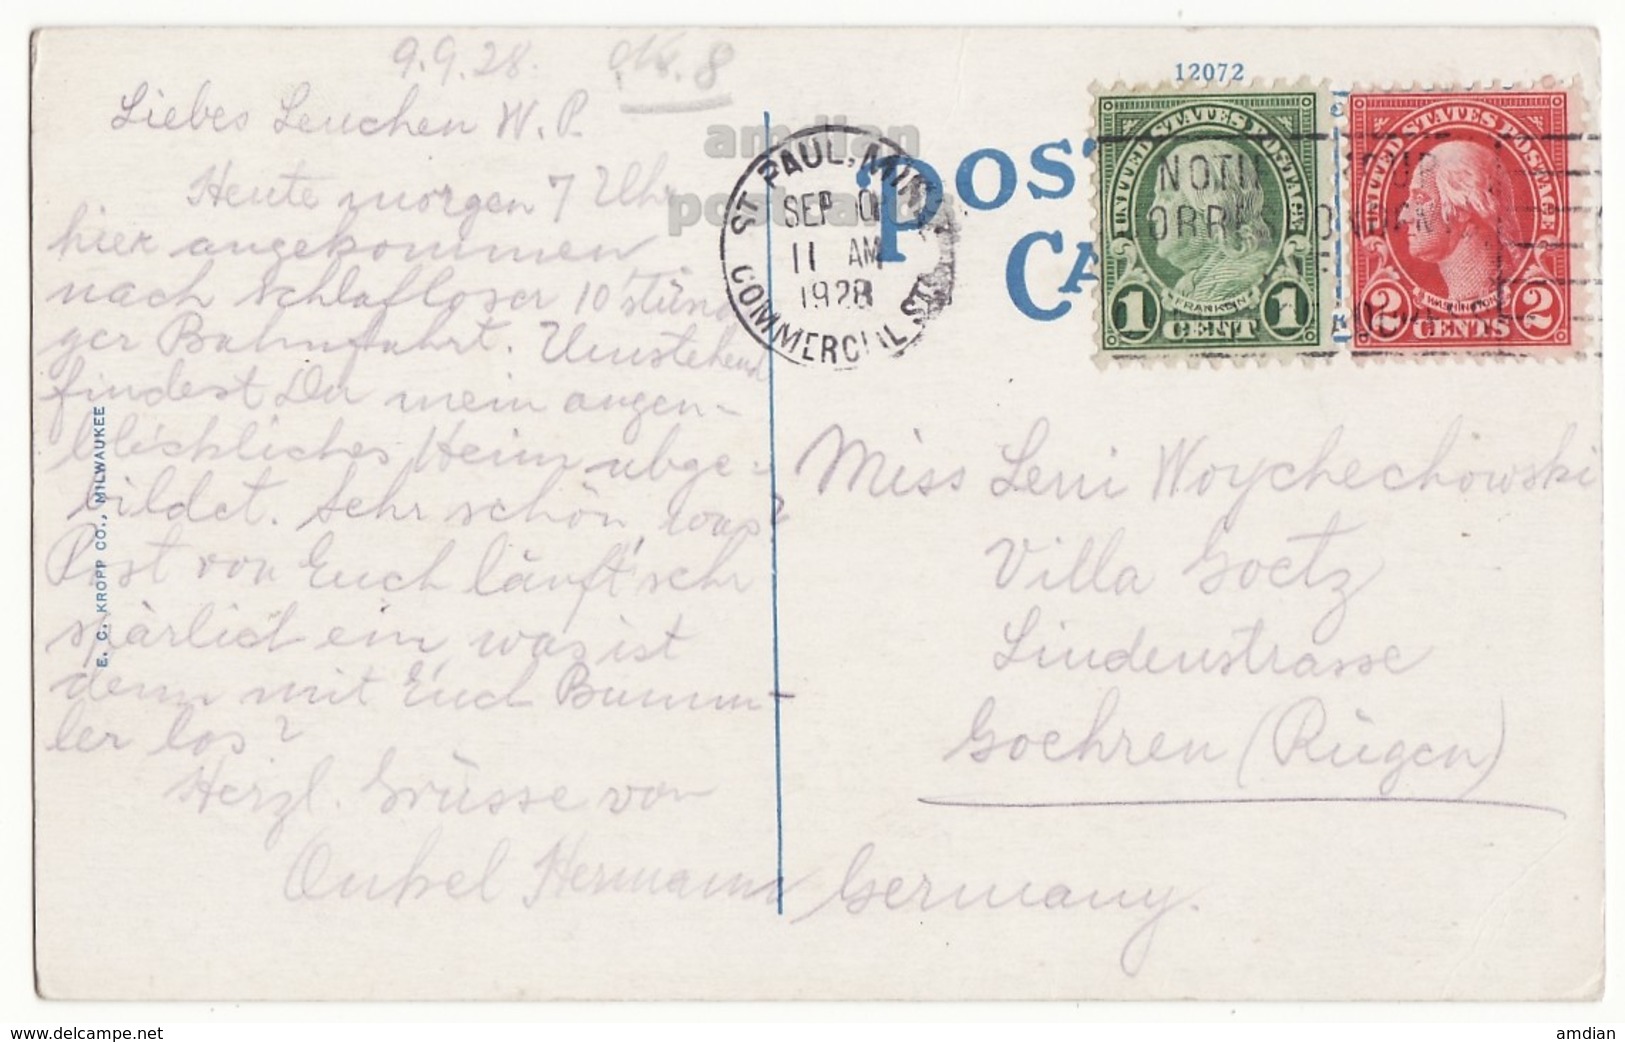 9.9.28. No. 8
Liebes Lenchen W. P.
Heute morgen 7 Uhr
hier angekommen
nach schlafloser 10 stündi
ger Bahnfahrt. Umstehend
findest Du mein augen-
blickliches Heim abge-
bildet. Sehr schön, was?
Post von Euch läuft sehr
spärlich ein, was ist
denn mit Euch Bumm-
ler los?
Herzl. Grüsse von
Onkel Hermann
E. C. KROPP CO., MILWAUKEE
amdian
postcards
ST. PAUL, MINN.
SEP
11 AM
1928
COMMERCIAL ST
12072
POST
CA
UNITED STATES POSTAGE
FRANKLIN
1 CENT 1
UNITED STATES POSTAGE
WASHINGTON
2 CENTS 2
YOUR
Miss Leni Woychechowski
Villa Goetz
Lindenstrasse
Goehren (Rügen)
Germany.
www.delcampe.net
amdian